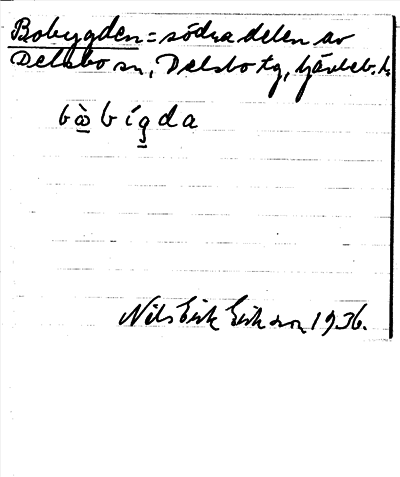 Bobygden = södra delen av
Delsbo sn, Delsbo tg, Gävleb. l.
bà̲bíg̲da
Nils Erik Eriksson 1936.